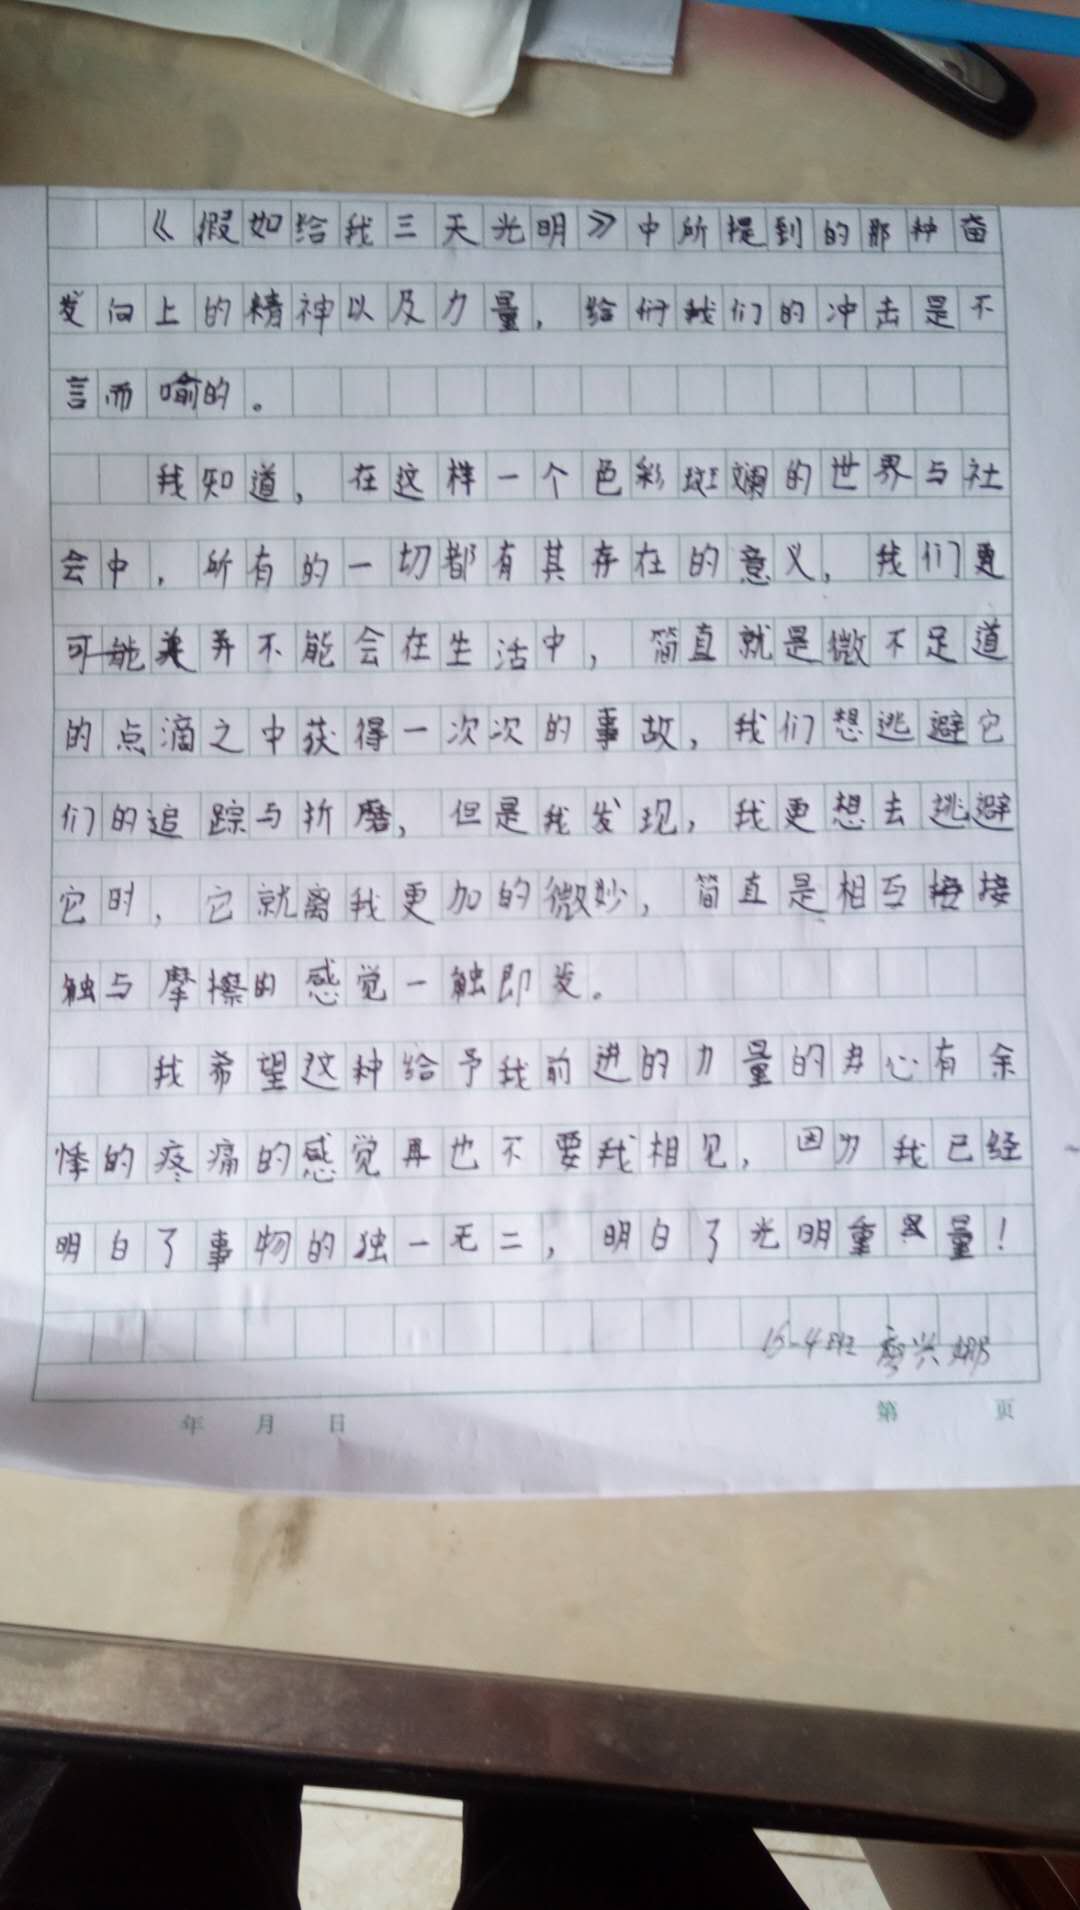 《假如给我三天光明》中所提到的那种奋
发向上的精神以及力量，给们我们的冲击是不
言而喻的。
我知道，在这样一个色彩斑斓的世界与社
会中，所有的一切都有其存在的意义，我们更
可能并不能会在生活中，简直就是微不足道
的点滴之中获得一次次的事故，我们想逃避它
们的追踪与折磨，但是我发现，我更想去逃避
它时，它就离我更加的微妙，简直是相互接
触与摩擦的感觉一触即发。
我希望这种给予我前进的力量的并心有余
悸的疼痛的感觉再也不要我相见，因为我已经
明白了事物的独一无二，明白了光明重量！
15-4班 廖兴娜
年 月 日 第 页